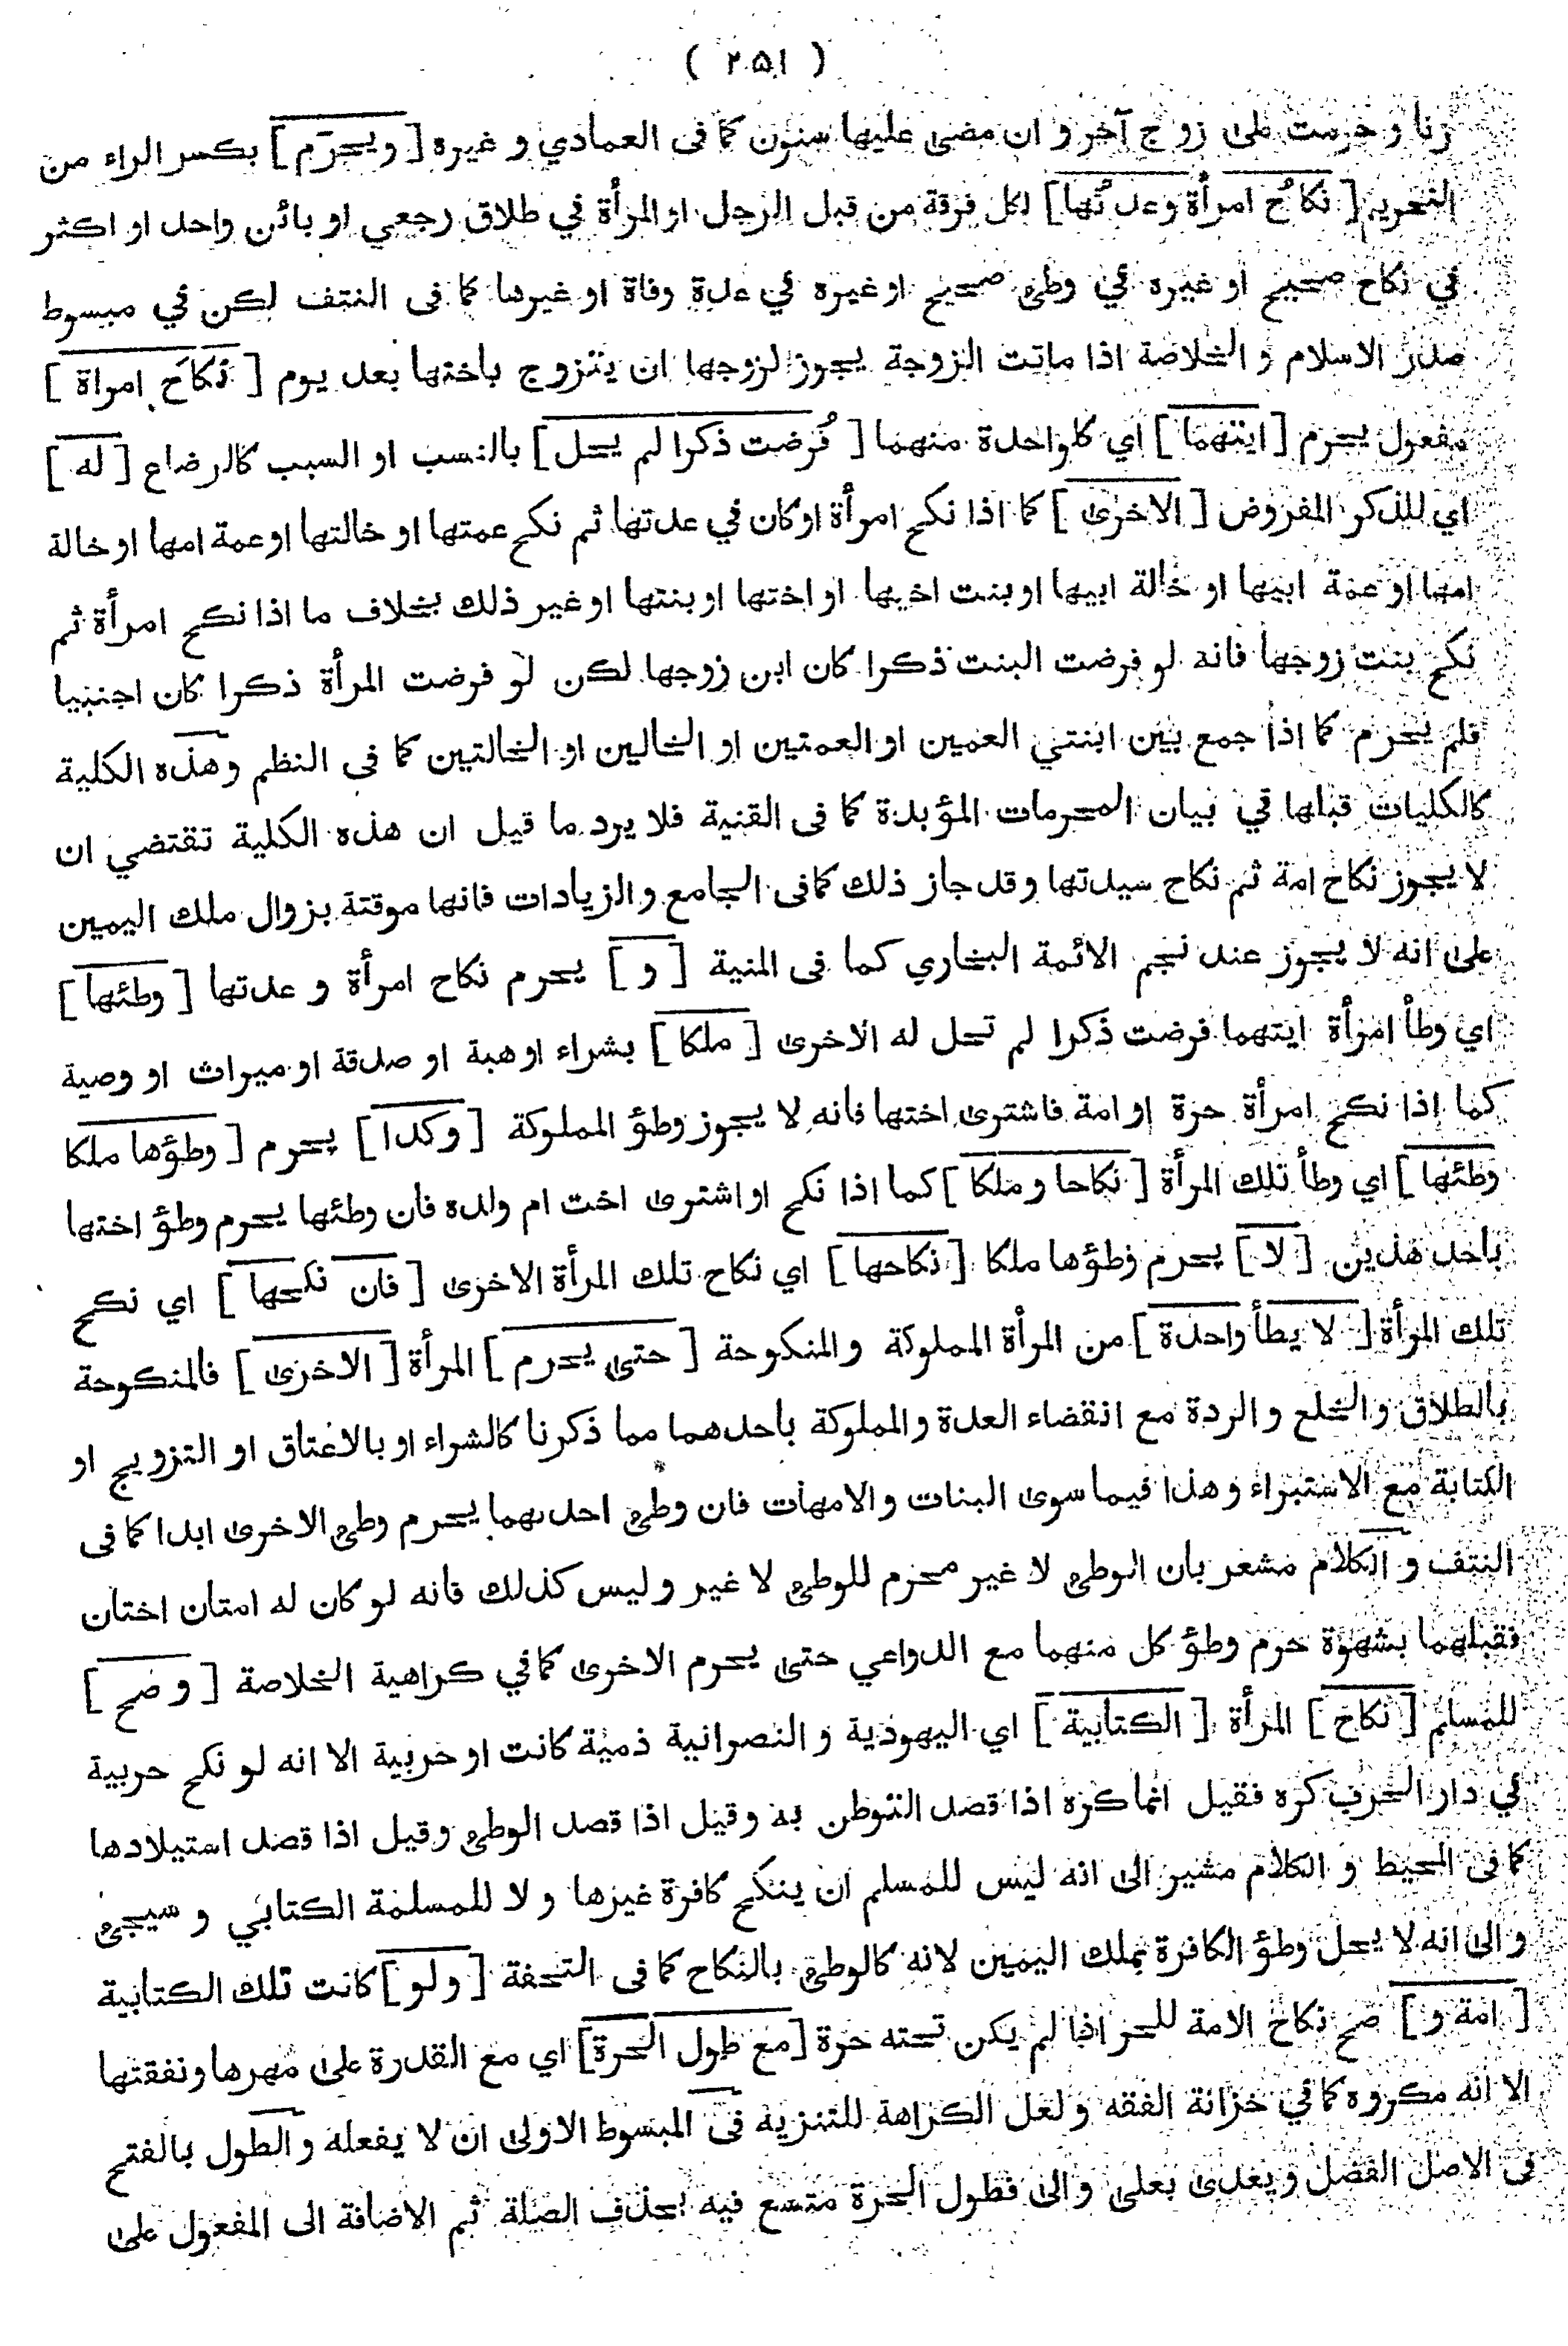 ( ٢٥١ )
زنا و حرمت على زوج آخر و ان مضى عليها سنون كما فى العمادي و غيره [ ويحرّم ] بكسر الراء من
التحريم [ نكاحُ امرأة وعدتُها ] لكل فرقة من قبل الرجل او المرأة في طلاق رجعي او بائن واحد او اكثر
في نكاح صحيح او غيره في وطئ صحيح او غيره في عدة وفاة او غيرها كما فى النتف لكن في مبسوط
صدر الاسلام و الخلاصة اذا ماتت الزوجة يجوز لزوجها ان يتزوج باختها بعد يوم [ نكاحَ امراة ]
مفعول يحرم [ ايتهما ] اي كل واحدة منهما [ فُرضت ذكرا لم يحل ] بالنسب او السبب كالرضاع [ له ]
اي للذكر المفروض [ الاخرى ] كما اذا نكح امرأة او كان في عدتها ثم نكح عمتها او خالتها او عمة امها او خالة
امها او عمة ابيها او خالة ابيها او بنت اخيها او اختها او بنتها او غير ذلك بخلاف ما اذا نكح امرأة ثم
نكح بنت زوجها فانه لو فرضت البنت ذكرا كان ابن زوجها لكن لو فرضت المرأة ذكرا كان اجنبيا
فلم يحرم كما اذا جمع بين ابنتي العمين او العمتين او الخالين او الخالتين كما فى النظم وهذه الكلية
كالكليات قبلها في بيان المحرمات المؤبدة كما فى القنية فلا يرد ما قيل ان هذه الكلية تقتضي ان
لا يجوز نكاح امة ثم نكاح سيدتها وقد جاز ذلك كما فى الجامع و الزيادات فانها موقتة بزوال ملك اليمين
على انه لا يجوز عند نجم الائمة البخاري كما فى المنية [ و ] يحرم نكاح امرأة و عدتها [ وطئها ]
اي وطأ امرأة ايتهما فرضت ذكرا لم تحل له الاخرى [ ملكا ] بشراء او هبة او صدقة او ميراث او وصية
كما اذا نكح امرأة حرة او امة فاشترى اختها فانه لا يجوز وطؤ المملوكة [ وكذا ] يحرم [ وطؤها ملكا
وطئها ] اي وطأ تلك المرأة [ نكاحا و ملكا ] كما اذا نكح او اشترى اخت ام ولده فان وطئها يحرم وطؤ اختها
باحد هذين [ لا ] يحرم وطؤها ملكا [ نكاحها ] اي نكاح تلك المرأة الاخرى [ فان نكحها ] اي نكح
تلك المرأة [ لا يطأ واحدة ] من المرأة المملوكة والمنكوحة [ حتى يحرم ] المرأة [ الاخرى ] فالمنكوحة
بالطلاق و الخلع و الردة مع انقضاء العدة و المملوكة باحدهما مما ذكرنا كالشراء او بالاعتاق او التزويج او
الكتابة مع الاستبراء و هذا فيما سوى البنات والامهات فان وطئ احدىهما يحرم وطئ الاخرى ابدا كما فى
النتف و الكلام مشعر بان الوطئ لا غير محرم للوطئ لا غير و ليس كذلك فانه لو كان له امتان اختان
فقبلهما بشهوة حرم وطؤ كل منهما مع الدواعي حتى يحرم الاخرى كما في كراهية الخلاصة [ و صح ]
للمسلم [ نكاح ] المرأة [ الكتابية ] اي اليهودية و النصرانية ذمية كانت او حربية الا انه لو نكح حربية
في دار الحرب كره فقيل انما كره اذا قصد التوطن به و قيل اذا قصد الوطئ وقيل اذا قصد استيلادها
كما فى المحيط و الكلام مشير الى انه ليس للمسلم ان ينكح كافرة غيرها و لا للمسلمة الكتابي و سيجئ
و الى انه لا يحل وطؤ الكافرة بملك اليمين لانه كالوطئ بالنكاح كما فى التحفة [ ولو ] كانت تلك الكتابية
[ امة و ] صح نكاح الامة للحر اذا لم يكن تحته حرة [ مع طول الحرة ] اي مع القدرة على مهرها ونفقتها
الا انه مكروه كما في خزانة الفقه و لعل الكراهة للتنزيه فى المبسوط الاولى ان لا يفعله و الطول بالفتح
فى الاصل الفضل و يعدى بعلى و الى فطول الحرة متسع فيه بحذف الصلة ثم الاضافة الى المفعول على